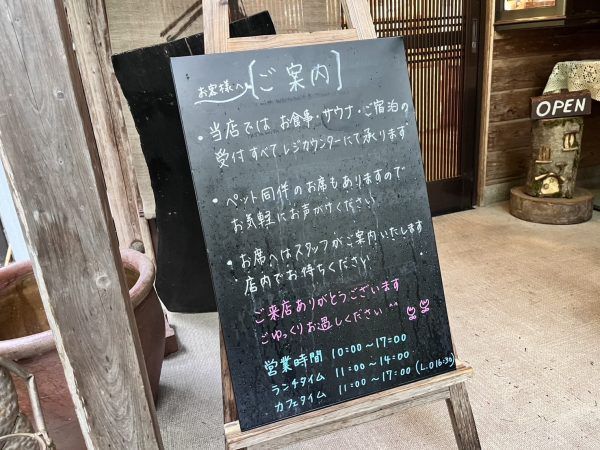 お客様へ【ご案内】
・当店では お食事・サウナ・ご宿泊の
受付すべてレジカウンターにて承ります
・ペット同伴のお席もありますので
お気軽にお声がけください
・お席へはスタッフがご案内いたします
店内でお待ちください
ご来店ありがとうございます
ごゆっくりお過しください ^^
営業時間 10:00〜17:00
ランチタイム 11:00〜14:00
カフェタイム 11:00〜17:00 (L.O16:30)
OPEN